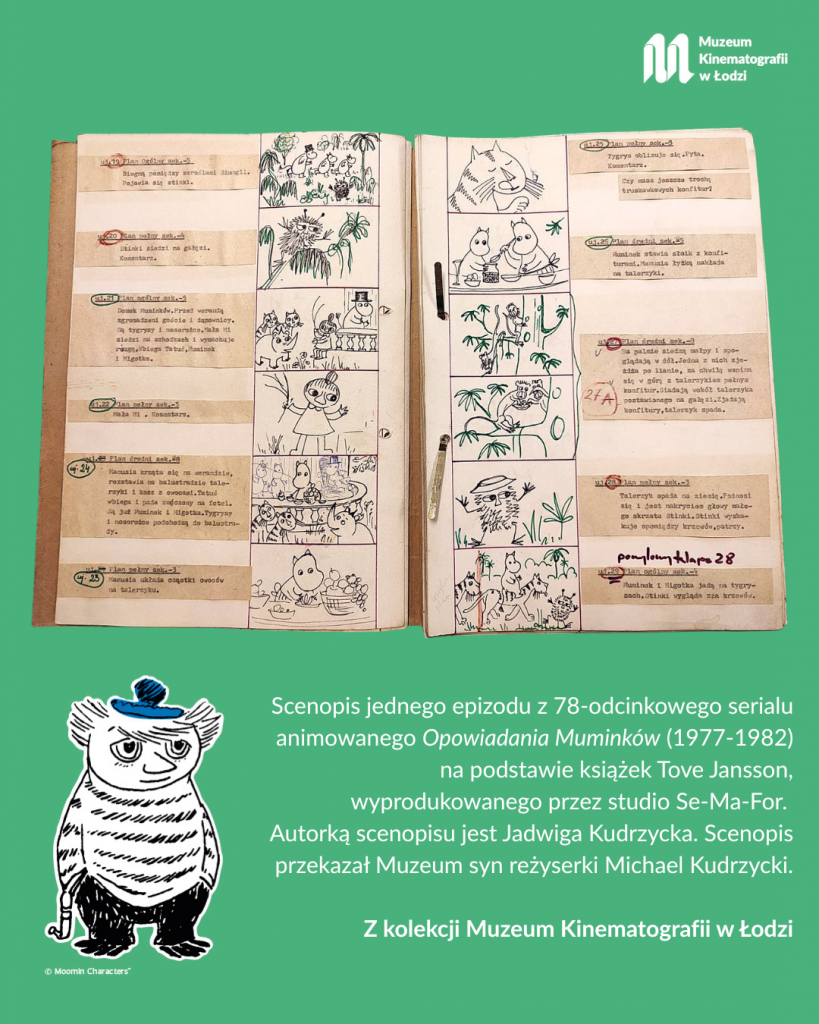 Muzeum
Kinematografii
w Łodzi
uj.19 Plan Ogólny sek.-5
Biegną pomiędzy zaroślami dżungli.
Pojawia się stinki.
uj.20 Plan pełny sek.-4
Stinki siedzi na gałęzi.
Komentarz.
uj.21 Plan ogólny sek.-5
Domek Muminków.Przed werandą
zgromadzeni goście i domownicy.
Są tygrysy i nosorożce.Mała Mi
siedzi na schodkach i wymachuje
rózgą.Wbiega Tatuś,Muminek
i Migotka.
uj.22 Plan pełny sek.-3
Mała Mi . Komentarz.
uj. 24
Plan średni sek.
Mamusia krząta się na werandzie,
rozstawia na balustradzie tale-
rzyki i kosz z owocami.Tatuś
wbiega i pada zmęczony na fotel.
Są już Muminek i Migotka.Tygrysy
i nosorożce podchodzą do balustra-
dy.
uj. 23
Plan pełny sek.-3
Mamusia układa cząstki owoców
na talerzyku.
uj.25 Plan pełny sek.-3
Tygrys oblizuje się.Pyta.
Komentarz.
Czy masz jeszcze trochę
truskawkowych konfitur?
uj.26 Plan średni sek.
Muminek stawia słoik z konfi-
turami.Mamusia łyżką nakłada
na talerzyki.
27A
Plan średni sek.-8
Na palmie siedzą małpy i spo-
glądają w dół.Jedna z nich zje-
żdża po lianie, za chwilę wspina
się w górę z talerzykiem pełnym
konfitur.Siadają wokół talerzyka
postawionego na gałęzi.Zjadają
konfitury,talerzyk spada.
uj.28 Plan pełny sek.-3
Talerzyk spada na ziemię.Podnosi
się i jest nakryciem głowy małe-
go skrzata Stinki.Stinki wyska-
kuje spomiędzy krzewów,patrzy.
pomylony klaps 28
uj.29 Plan ogólny sek.-4
Muminek i Migotka jadą na tygry-
sach.Stinki wygląda zza krzewów.
Scenopis jednego epizodu z 78-odcinkowego serialu
animowanego Opowiadania Muminków (1977-1982)
na podstawie książek Tove Jansson,
wyprodukowanego przez studio Se-Ma-For.
Autorką scenopisu jest Jadwiga Kudrzycka. Scenopis
przekazał Muzeum syn reżyserki Michael Kudrzycki.
Z kolekcji Muzeum Kinematografii w Łodzi
© Moomin Characters™